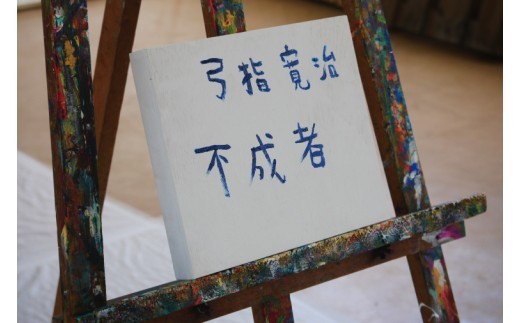 弓指寛治
不成者